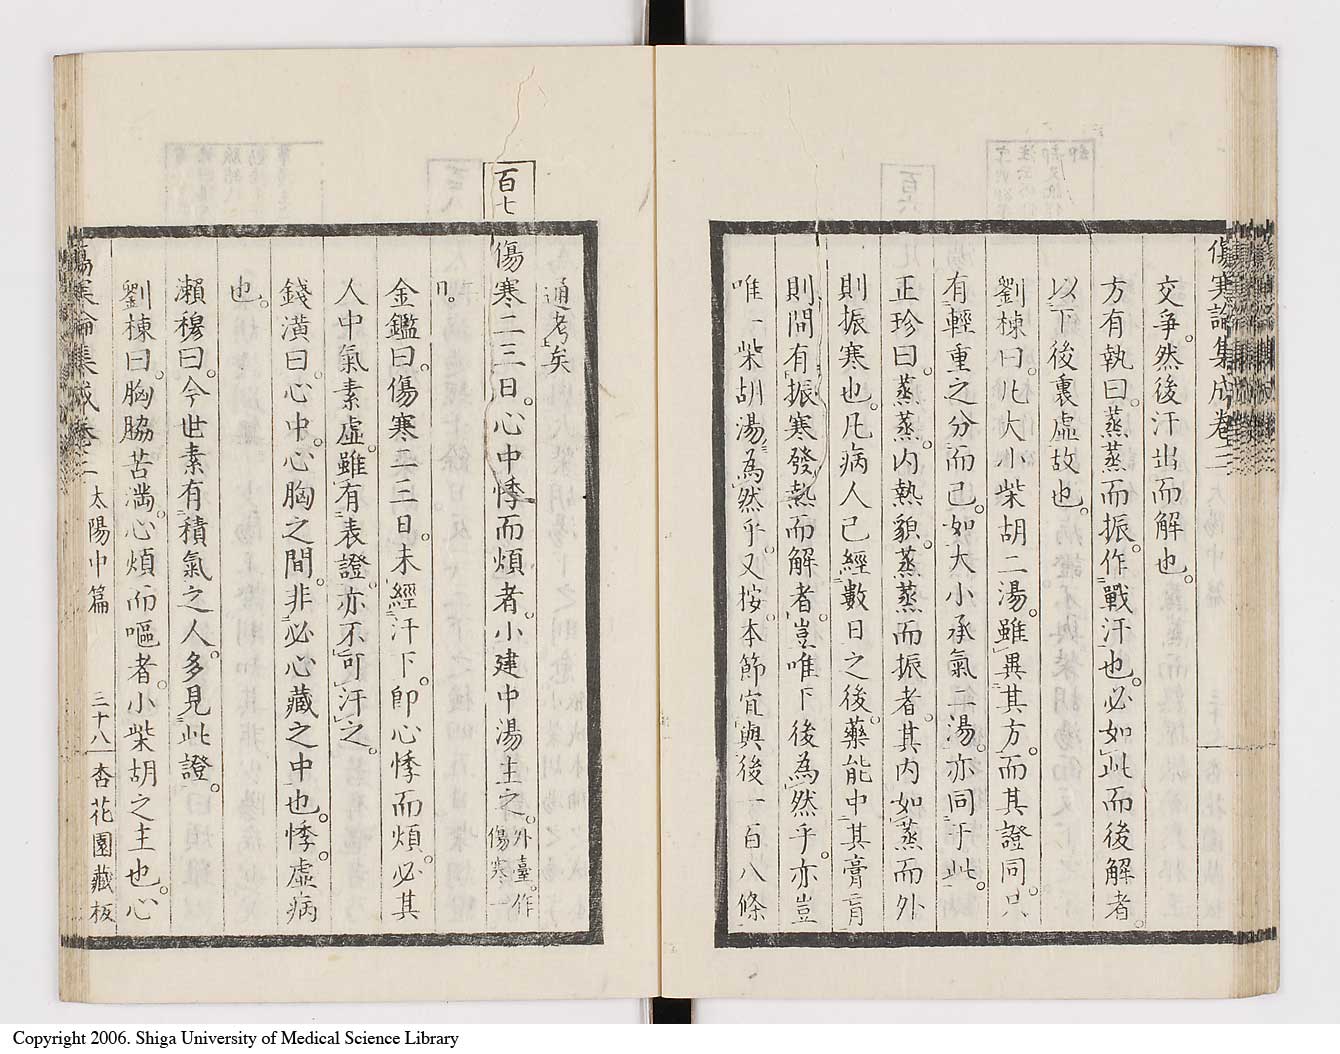 傷寒論集成卷三
交爭。然後汗出而解也。
方有執曰。蒸蒸而振。作戰汗也。必如此而後解者。
以下後裏虛故也。
劉棟曰。凡大小柴胡二湯。雖異其方。而其證同。只
有輕重之分而已。如大小承氣二湯。亦同于此。
正珍曰。蒸蒸。内熱貌。蒸蒸而振者。其内如蒸而外
則振寒也。凡病人已經數日之後。藥能中其膏肓
則間有振寒發熱而解者。豈唯下後為然乎。亦豈
唯一柴胡湯為然乎。又按。本節宜與後一百八條
通考矣
百七
傷寒二三日。心中悸而煩者。小建中湯主之。外臺。作傷寒一
日。
金鑑曰。傷寒二三日。未經汗下。即心悸而煩。必其
人中氣素虛。雖有表證。亦不可汗之。
錢潢曰。心中。心胸之間。非必心藏之中也。悸。虛病
也。
瀨穆曰。今世素有積氣之人。多見此證。
劉棟曰。胸脇苦滿。心煩而嘔者。小柴胡之主也。心
傷寒論集成卷三 太陽中篇 三十八 杏花園藏板
Copyright 2006. Shiga University of Medical Science Library